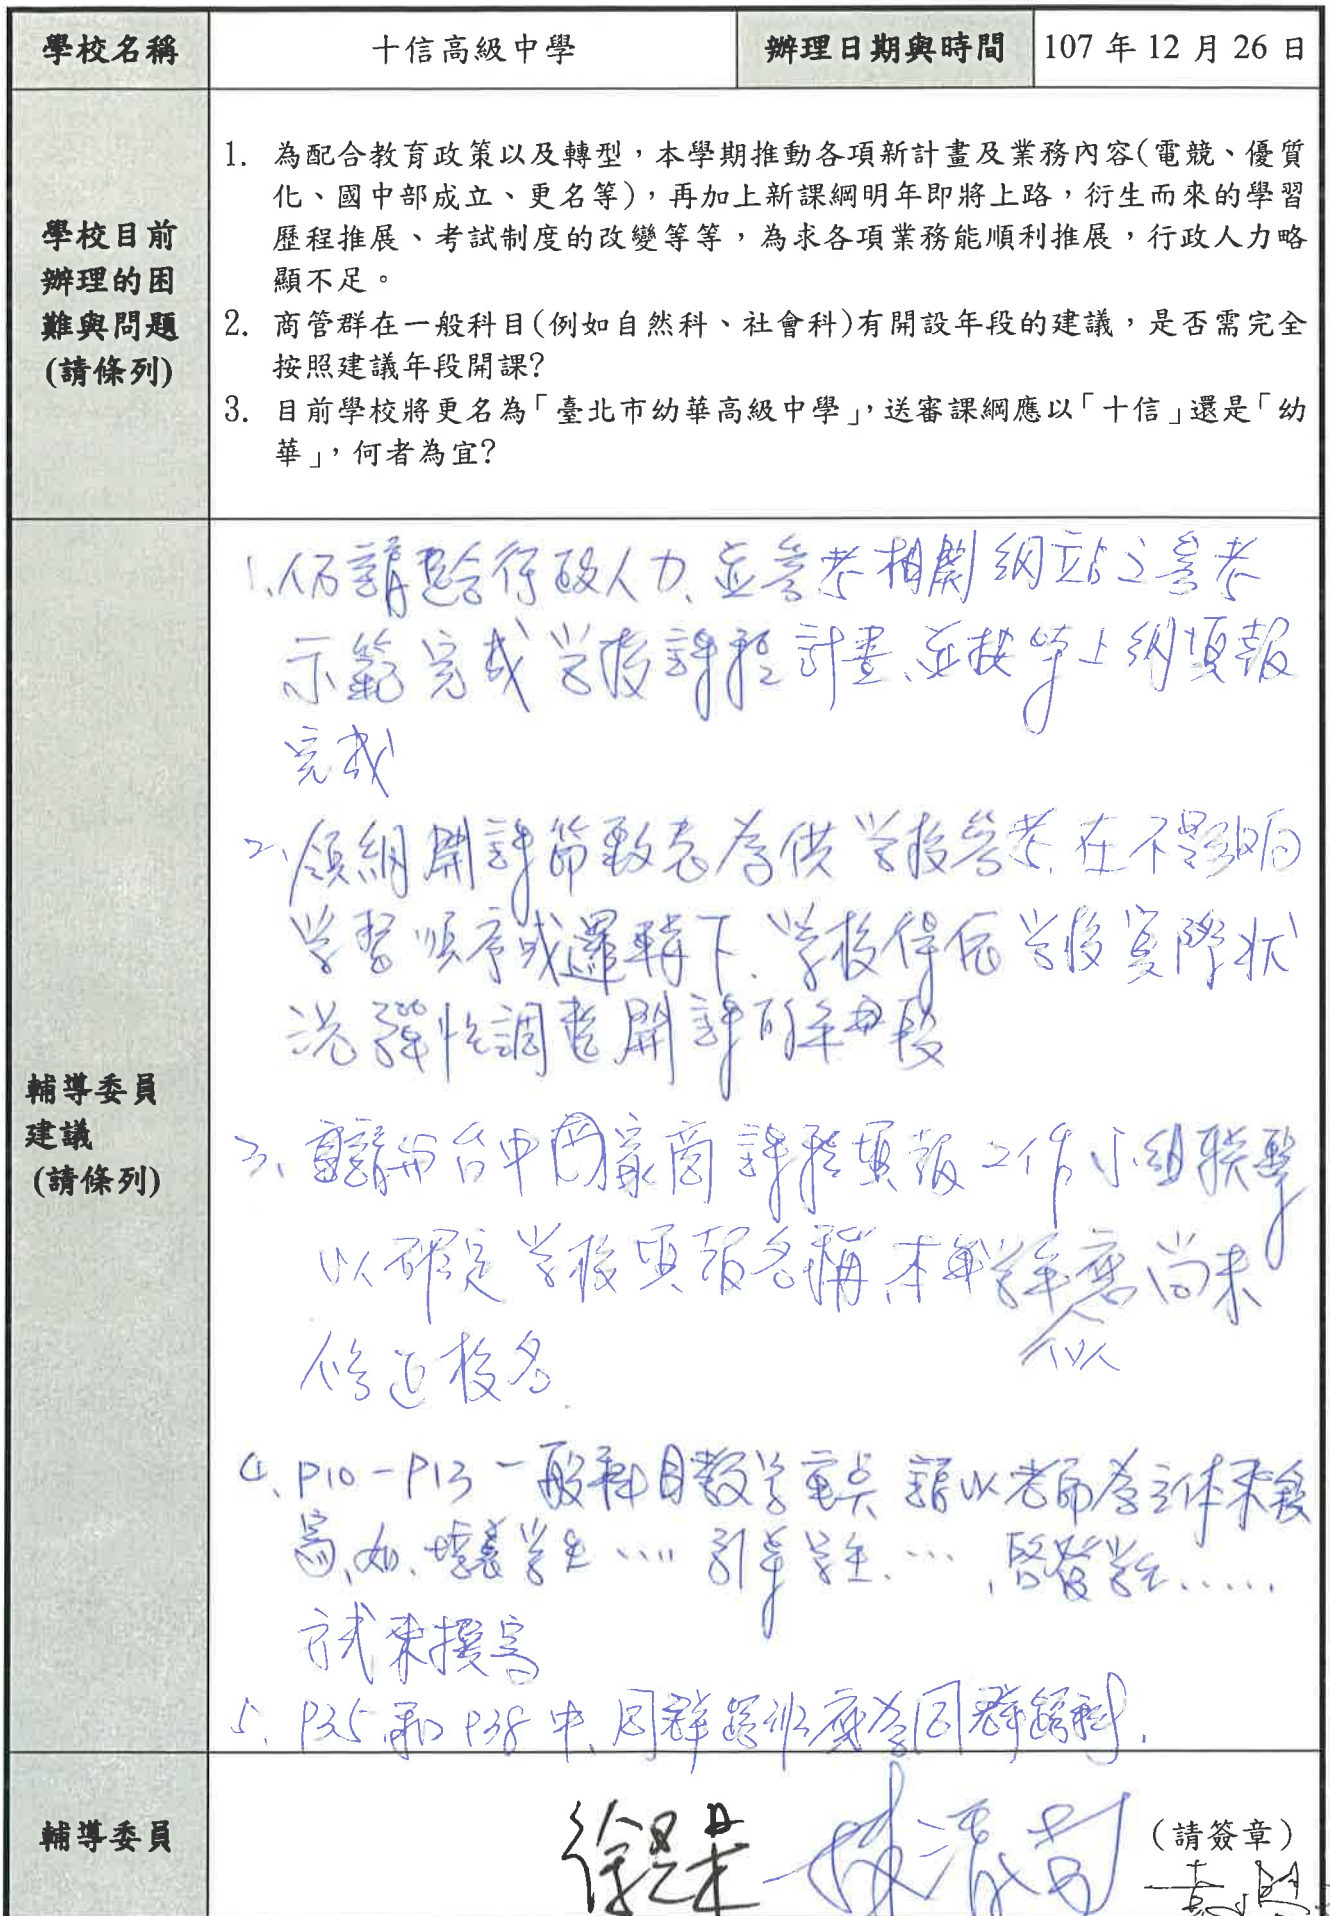 學校名稱 十信高級中學 辦理日期與時間 107 年 12 月 26 日
學校目前
辦理的困
難與問題
(請條列)
1. 為配合教育政策以及轉型，本學期推動各項新計畫及業務內容(電競、優質
化、國中部成立、更名等)，再加上新課綱明年即將上路，衍生而來的學習
歷程推展、考試制度的改變等等，為求各項業務能順利推展，行政人力略
顯不足。
2. 商管群在一般科目(例如自然科、社會科)有開設年段的建議，是否需完全
按照建議年段開課?
3. 目前學校將更名為「臺北市幼華高級中學」，送審課綱應以「十信」還是「幼
華」，何者為宜?
輔導委員
建議
(請條列)
1、仍請整合行政人力、並參考相關網站之參考
示範完成学校課程計畫、並按時上網填報
完成
2、領綱開課節數表為供学校參考、在不影响
学習順序或邏輯下、学校得依学校實際狀
況彈性調整開課的年段
3、請與台中家商課程填報工作小組聯繫
以確定学校填報名稱 本学年應尚未
仍以
校名
4、P10-P13 一般科目教学重点 請以老師為主体來敘
寫、如、培養学生…… 引導学生…、啓發学生……
方式來撰寫
5、P35 和 P38 中、同群跨班應為同群跨科.
輔導委員
(請簽章)